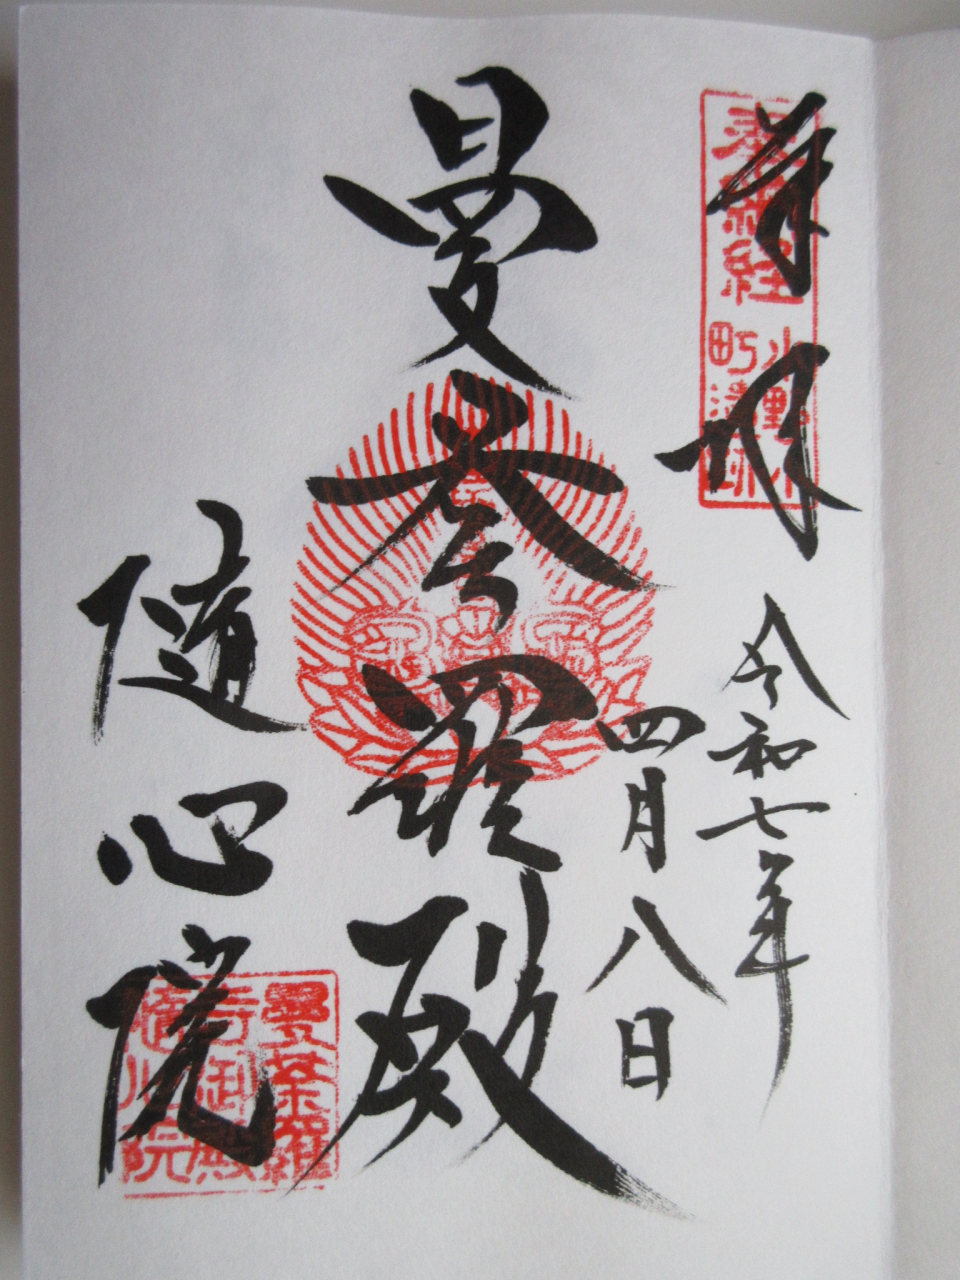 奉拝
小野小
町遺跡
令和七年
四月八日
曼荼羅殿
隨心院
曼荼羅
寺御殿
隨心院